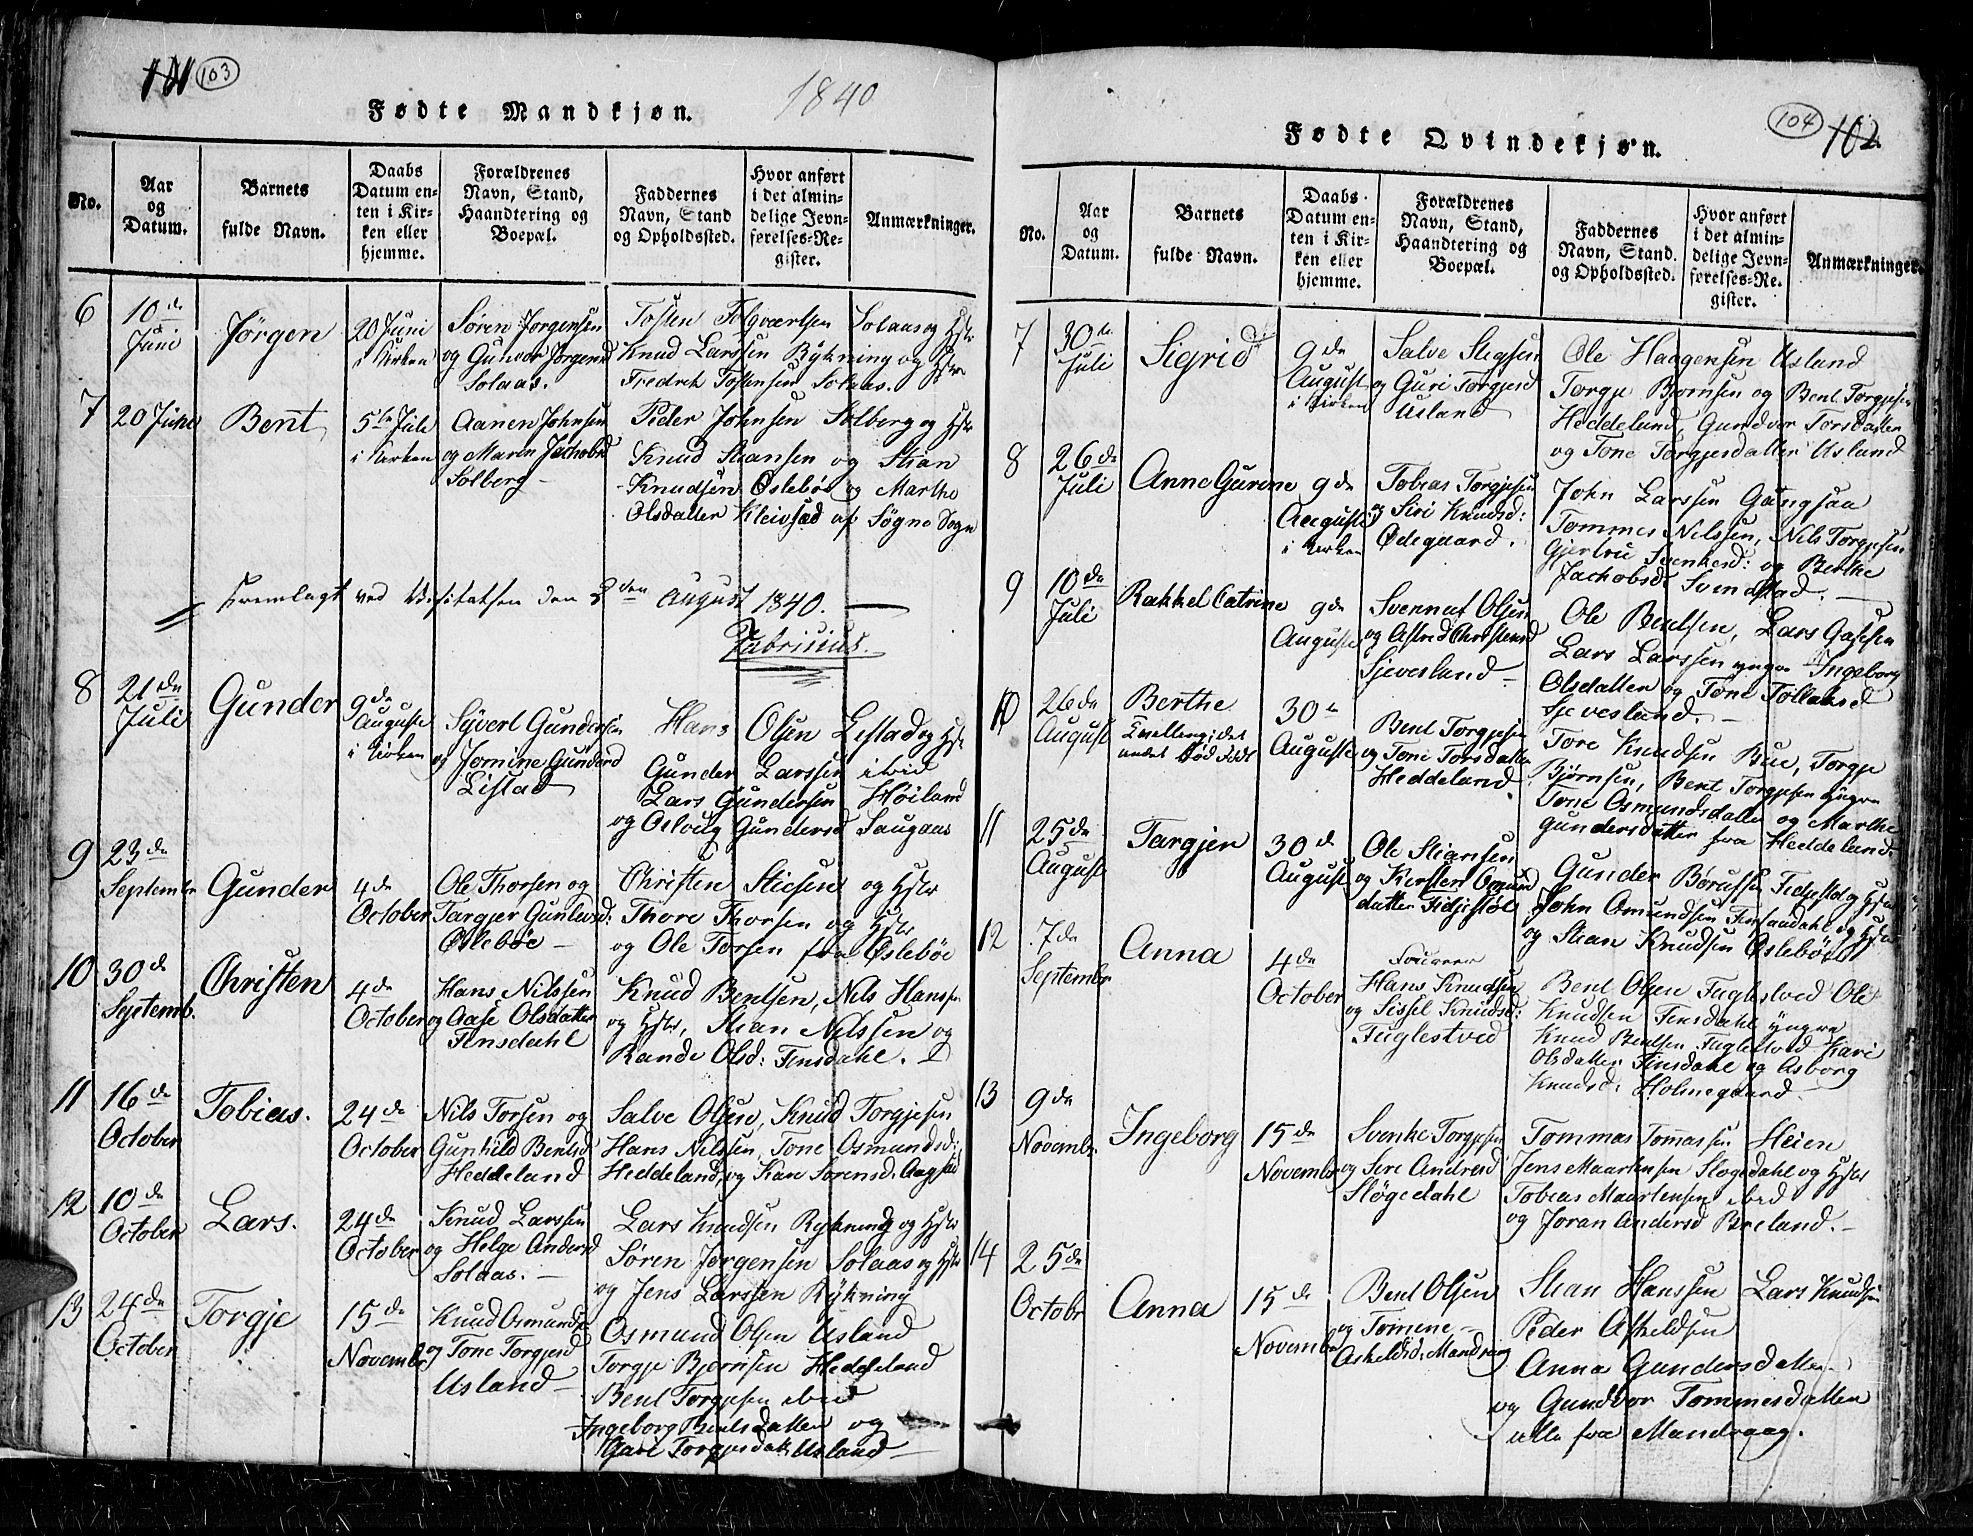 101 103
Fødte Mandkjøn. 1840
No.
Aar og Datum.
Barnets fulde Navn.
Daabs Datum enten i Kirken eller hjemme.
Forældrenes Navn, Stand, Haandtering og Boepæl.
Faddernes Navn, Stand og Opholdssted.
Hvor anført i det almindelige Jevnførelses-Register.
Anmærkninger.
6 10de Juni
Jörgen
20 Juni i Kirken
Sören Jörgensen
og Gunvor Jörgensd
Solaas.
Tosten Folqvartsen Solaas og Hstr
Knud Larssen Rykning og Hstr
Fredrik Tostensen Solaas.
7 20 Juni
Bent
5te Juli i Kirken
Aanen Johnsen
og Maren Jachobsd
Solberg
Peder Johnsen Solberg og Hstr
Knud Stiansen og Stian
Knudsen Osleböe og Marthe
Olsdatter Kleivsæd af Søgne Sogn
Fremlagt ved Visitatsen den 3den August 1840.
Fabricius.
8 21de Juli
Gunder
9de August i Kirken
Syvert Gundersen
og Jomine Gundersd
Leistad
Hans Olsen Leistad og Hstr
Gunder Larssen ibid
Lars Gundersen Höiland
og Osloug Gundersd Saugaas
9 23de September
Gunder
4de October
Ole Thorsen og
Targjer Gunlevsd:
Oslebøe
Christen Sticsen og Hstr
Thore Thorsen og Hstr
og Ole Torsen fra Oslebøe
10 30de Septemb.
Christen
4de October
Hans Nilssen
og Aase Olsdatter
Finsdahl
Knud Bentsen, Nils Hanss
og Hstr, Stian Nilssen og
Rande Olsd: Finsdahl.
11 16de October
Tobias.
24de October
Nils Torsen og
Gunhild Bentsd
Heddeland
Salve Olsen, Knud Torgjesen
Hans Nilssen, Tone Osmundsd:
Heddeland, og Kari Sorensd. Aagstad
12 10de October
Lars.
24de October
Knud Larssen
og Helge Andersd
Solaas.
Lars Knudsen Rykning og Hstr
Søren Jørgensen Solaas og Hstr
og Jens Larssen Rykning
13 24de October
Torgje
15de Novembr
Knud Osmundsen
og Tone Torgjersd
Usland
Osmund Olsen Usland
Torgje Bjørnsen Heddeland
Bent Torgjesen ibid
Ingeborg Bentsdatter og
Guri Torgjesdatt Usland
104 102
Fødte Qvindekjøn.
No.
Aar og Datum.
Barnets fulde Navn.
Daabs Datum enten i Kirken eller hjemme.
Forældrenes Navn, Stand, Haandtering og Boepæl.
Faddernes Navn, Stand og Opholdssted.
Hvor anført i det almindelige Jevnførelses-Register.
Anmærkninger.
7 30te Juli
Sigrid
9de August i Kirken
Salve Stigsen
og Guri Torgjersd
Usland
Ole Haagensen Usland
Torgje Bjørnsen og Bent Torgjesen
Heddeland, Gundvor Torsdatter
og Tone Torgjersdatter Usland
8 26de Juli
Anne Gurine
9de August i Kirken
Tobias Torgjesen
og Siri Knudsd:
Ødegaard.
John Larssen Gangsaa
Tommes Nilssen, Nils Torgjesen
Gjertru Svenkesd: og Berthe
Jachobsd Svindstad.
9 10de Juli
Rakkel Catrine
9de August
Svennut Olsen
og Astred Christensd
Sjevesland
Ole Bentsen, Lars
Lars Larssen yngre Ingeborg
Olsdatter og Tone Tollaksd
Sjevesland.
10 26de August
Berthe
Tvilling; det
andet død född
30te August
Bent Torgjesen
og Tone Torsdatter
Heddeland
Tore Knudsen Bue, Torgje
Bjørnsen, Bent Torgjesen yngre
Tone Osmundsdatter og Marthe
Gundersdatter fra Heddeland.
11 25de August
Targjer
30de August
Ole Stiansen
og Kirsten Omund
datter Fidjestöl
Gunder Børussen Fidjestöl og Hstr
John Omundsen Finsaadahl og Hstr
og Stian Knudsen Oslebøe
12 7de Septembr
Anna
4de October
Hans Knudsen
og Sissel Knudsd:
Fuglestved
Bent Olsen Fuglestved Ole
Knudsen Finsdahl yngre
Knud Bentsen Fuglestved Kari
Olsdatter Finsdahl og Asborg
Knudsd. Holmegaard.
13 9de Novembr
Ingeborg
15de Novembr
Svenke Torgjesen
og Sire Andersd
Sløgedahl
Tommas Tomassen Heien
Jens Maartensen Sløgedahl og Hstr
Tobias Maartensen ibid
og Joran Andersd Breland.
14 25de Octobr
Anna
15de Novembr
Bent Olsen
og Tomine
Askeldsd. Mandraag
Stian Hanssen Lars Knudsen
Peder Askeldsen
Anna Gundersdatter
og Gundvor Tommesdatter
alle fra Mandraag.